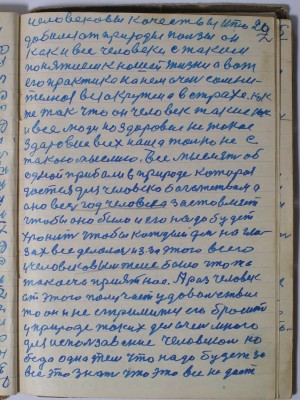 человековы качествы что
добыла от природы пользы он
как и все человеки с таким
понятием к нашей жизни а вот
его практика на нем очен сомни
тельная вся окружена в страхе. как
же так что он человек такие как
и все люди но здоровье не такое
здоровие всех наша только не с
такою мыслию. Все мыслят об
одной прибыли в природе которая
дается для человека богатством а
оно весь год человека заставляет
чтобы оно было и его надо будет
хронить чтобы каждый дин на гла
зах все делалос из за этого всего
человековым теле было что же
такое че приятное. А раз человек
от этого получает удовольствие
то он и не стремится его бросить
у природе таких дел очен много
для использавание человеком но
беда одна тем что надо будет за
все это знать что это все не дает